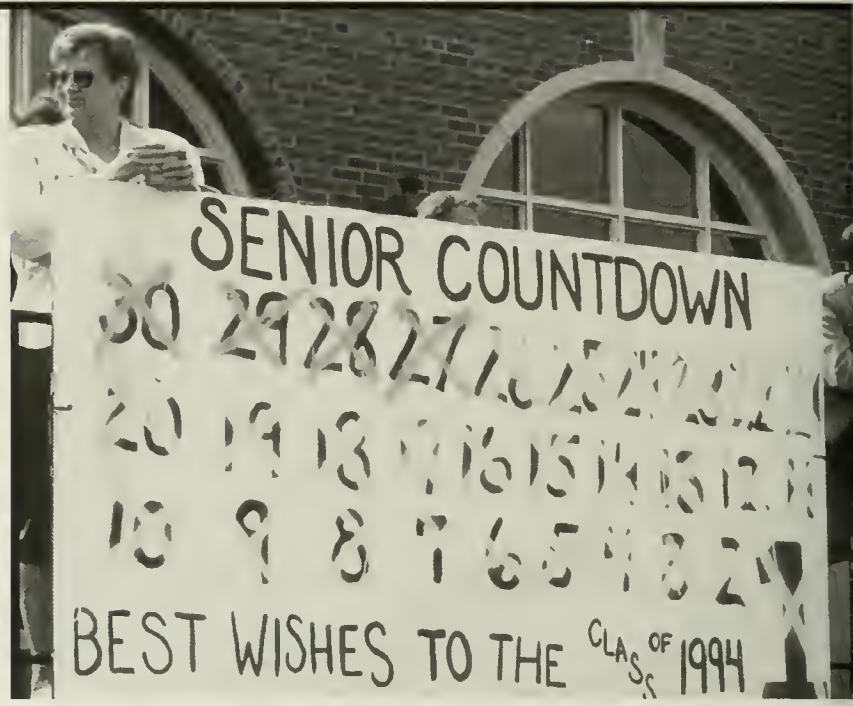 SENIOR COUNTDOWN
30 29 28 27 26 25 24 23 22 21
20 19 18 17 16 15 14 13 12 11
10 9 8 7 6 5 4 3 2
BEST WISHES TO THE CLASS OF 1994